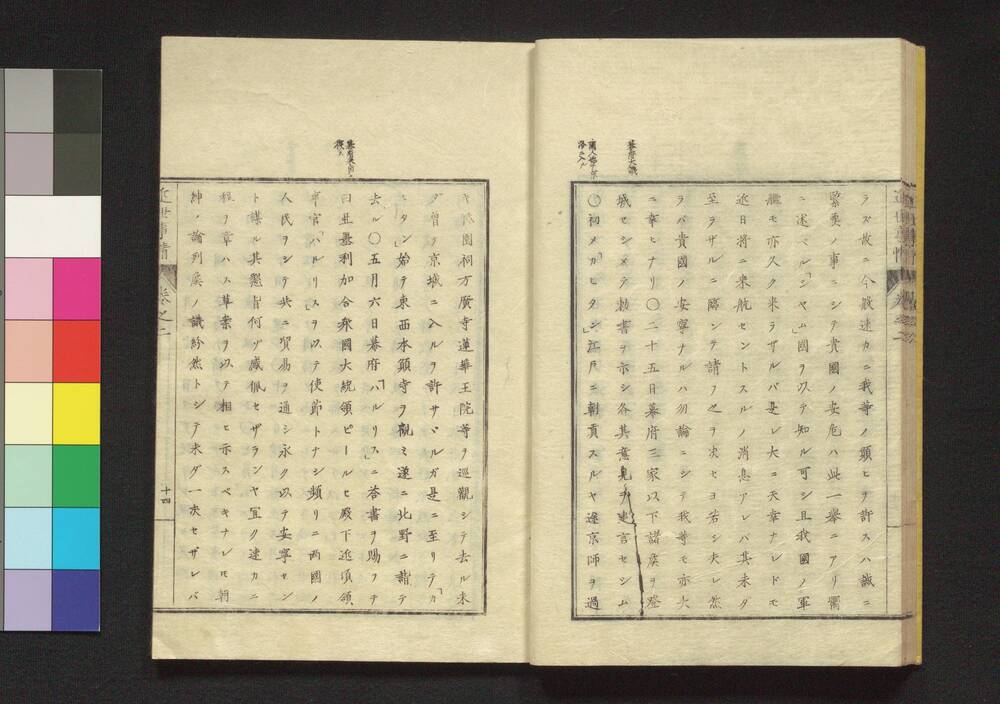 幕府大議
蘭人学ヒ京
洛ニ入ル
ラズ故ニ今般速カニ我等ノ願ヒヲ許スハ誠ニ
緊要ノ事ニシテ貴國ノ安危ハ此一擧ニアリ爾
ニ述ベル「シヤム」國ヲ以テ知ル可シ且我國ノ軍
艦モ亦久ク来ラザルバ是レ大ニ天幸ナレドモ
近日將ニ来航セントスルノ消息アレバ其未ダ
至ラザルニ臨ンテ請フ之ヲ决セヨ若シ夫レ然
ラバ貴國ノ安寧ナルハ勿論ニシテ我等モ亦大
ニ幸ヒナリ〇二十五日幕府三家以下諸矦ヲ登
城セシメテ勅書ヲ示シ各其意見ヲ建言セシム
〇初メカ「ヒタン」江戸ニ朝貢スルヤ途京師ヲ過
園祠方廣寺蓮華王院等ヲ巡觀シテ去ル未
ダ曾テ京城ニ入ルヲ許サヾルガ是ニ至リテ「カ
ヒタン」始テ東西本願寺ヲ觀ミ遂ニ北野ニ詣テ
去ル〇五月六日幕府「ハルリス」ニ答書ヲ賜フテ
曰亜墨利加合衆國大統領ピールセ殿下近頃領
事官「ハルリス」ヲ以テ使節トナシ頻リニ两國ノ
人民ヲシテ共ニ貿易ヲ通シ永ク以テ安寧セン
ト謀ル其懇旨何ゾ感佩セザランヤ宜ク速カニ
程ヲ章ハス草案ヲ以テ相ヒ示スベキナレモ朝
紳ノ論列矦ノ議紛然トシテ未ダ一决セザレバ
近世事情
巻之二
十四